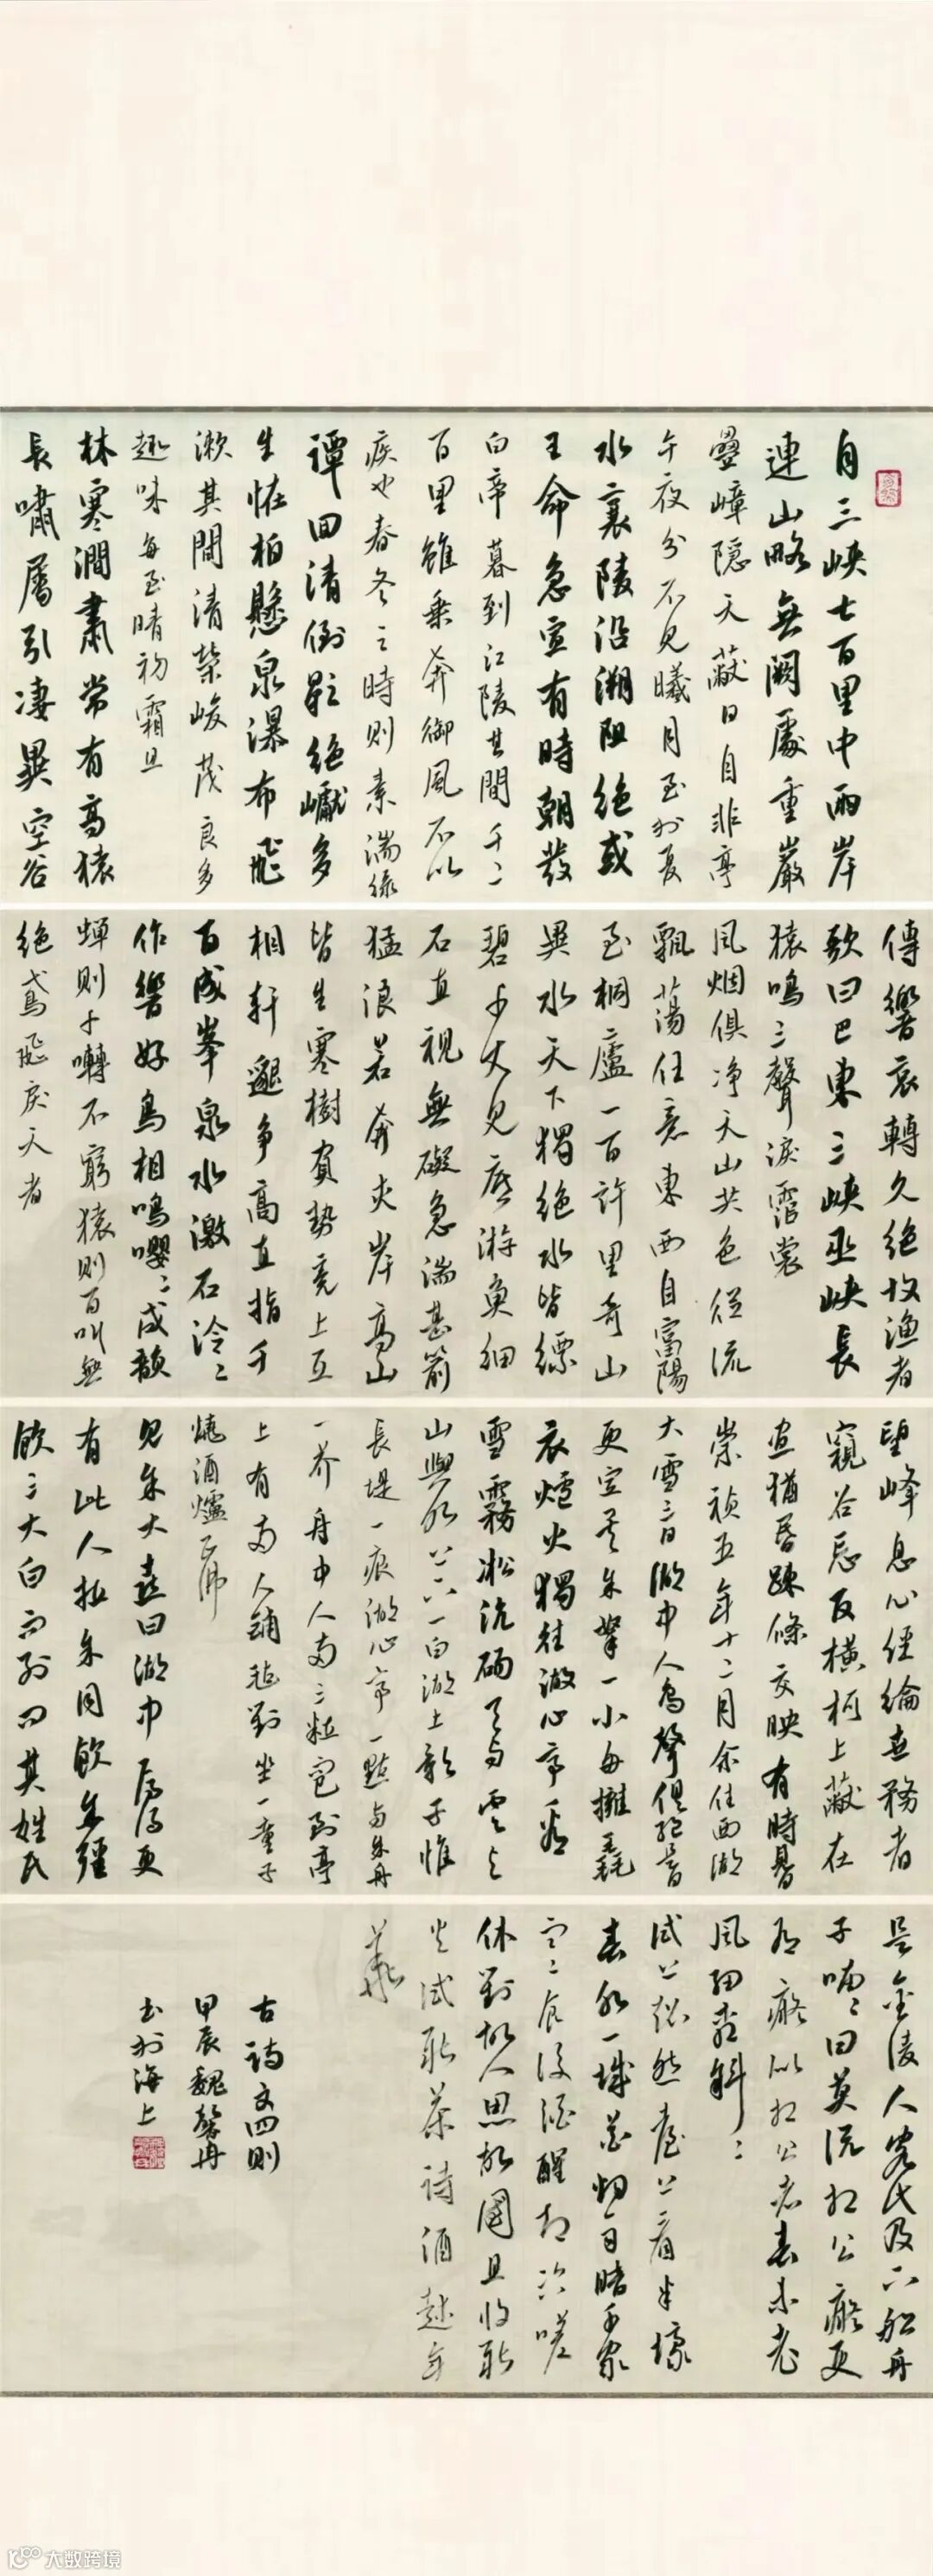 自三峡七百里中兩岸
連山略無闕處重巖
疊嶂隐天蔽日自非亭
午夜分不見曦月至於夏
水襄陵沿溯阻絶或
王命急宣有時朝發
白帝暮到江陵其間千二
百里雖乘奔御風不以
疾也春冬之時則素湍緑
潭回清倒影绝巘多
生怪柏懸泉瀑布飛
漱其間清榮峻茂良多
趣味每至晴初霜旦
林寒澗肅常有高猿
長嘯屬引凄異空谷
傳響哀轉久绝故漁者
歌曰巴東三峡巫峡長
猿鳴三聲淚霑裳
風烟俱净天山共色從流
飄蕩任意東西自富陽
至桐廬一百許里奇山
異水天下獨绝水皆缥
碧千丈見底游魚細
石直視無礙急湍甚箭
猛浪若奔夾岸高山
皆生寒樹負勢竞上互
相軒邈争高直指千
百成峯泉水激石泠二
作響好鳥相鳴嘤二成韻
蝉則千囀不窮猿則百叫無
绝鳶飛戾天者
望峰息心經綸世務者
窺谷忘反横柯上蔽在
晝猶昏疎條交映有時見日
崇禎五年十二月余住西湖
大雪三日湖中人鳥聲俱絕是日
更定矣余拏一小舟擁毳
衣爐火獨往湖心亭看
雪霧凇沆碭天與雲與
山與水上下一白湖上影子惟
長堤一痕湖心亭一點與余舟
一芥舟中人兩三粒而已到亭
上有兩人鋪氈對坐一童子
燒酒爐正沸
見余大喜曰湖中焉得更
有此人拉余同飲余强
飲三大白而别問其姓氏
是金陵人客此及下船舟
子喃二曰莫説相公癡更
有癡似相公者春未老
風細柳斜二
試上超然臺上看半壕
春水一城花烟雨暗千家
寒食後酒醒却咨嗟
休對故人思故國且將新
火試新茶詩酒趁年
華
古詩文四則
甲辰魏馨冉
書於海上
大数跨境